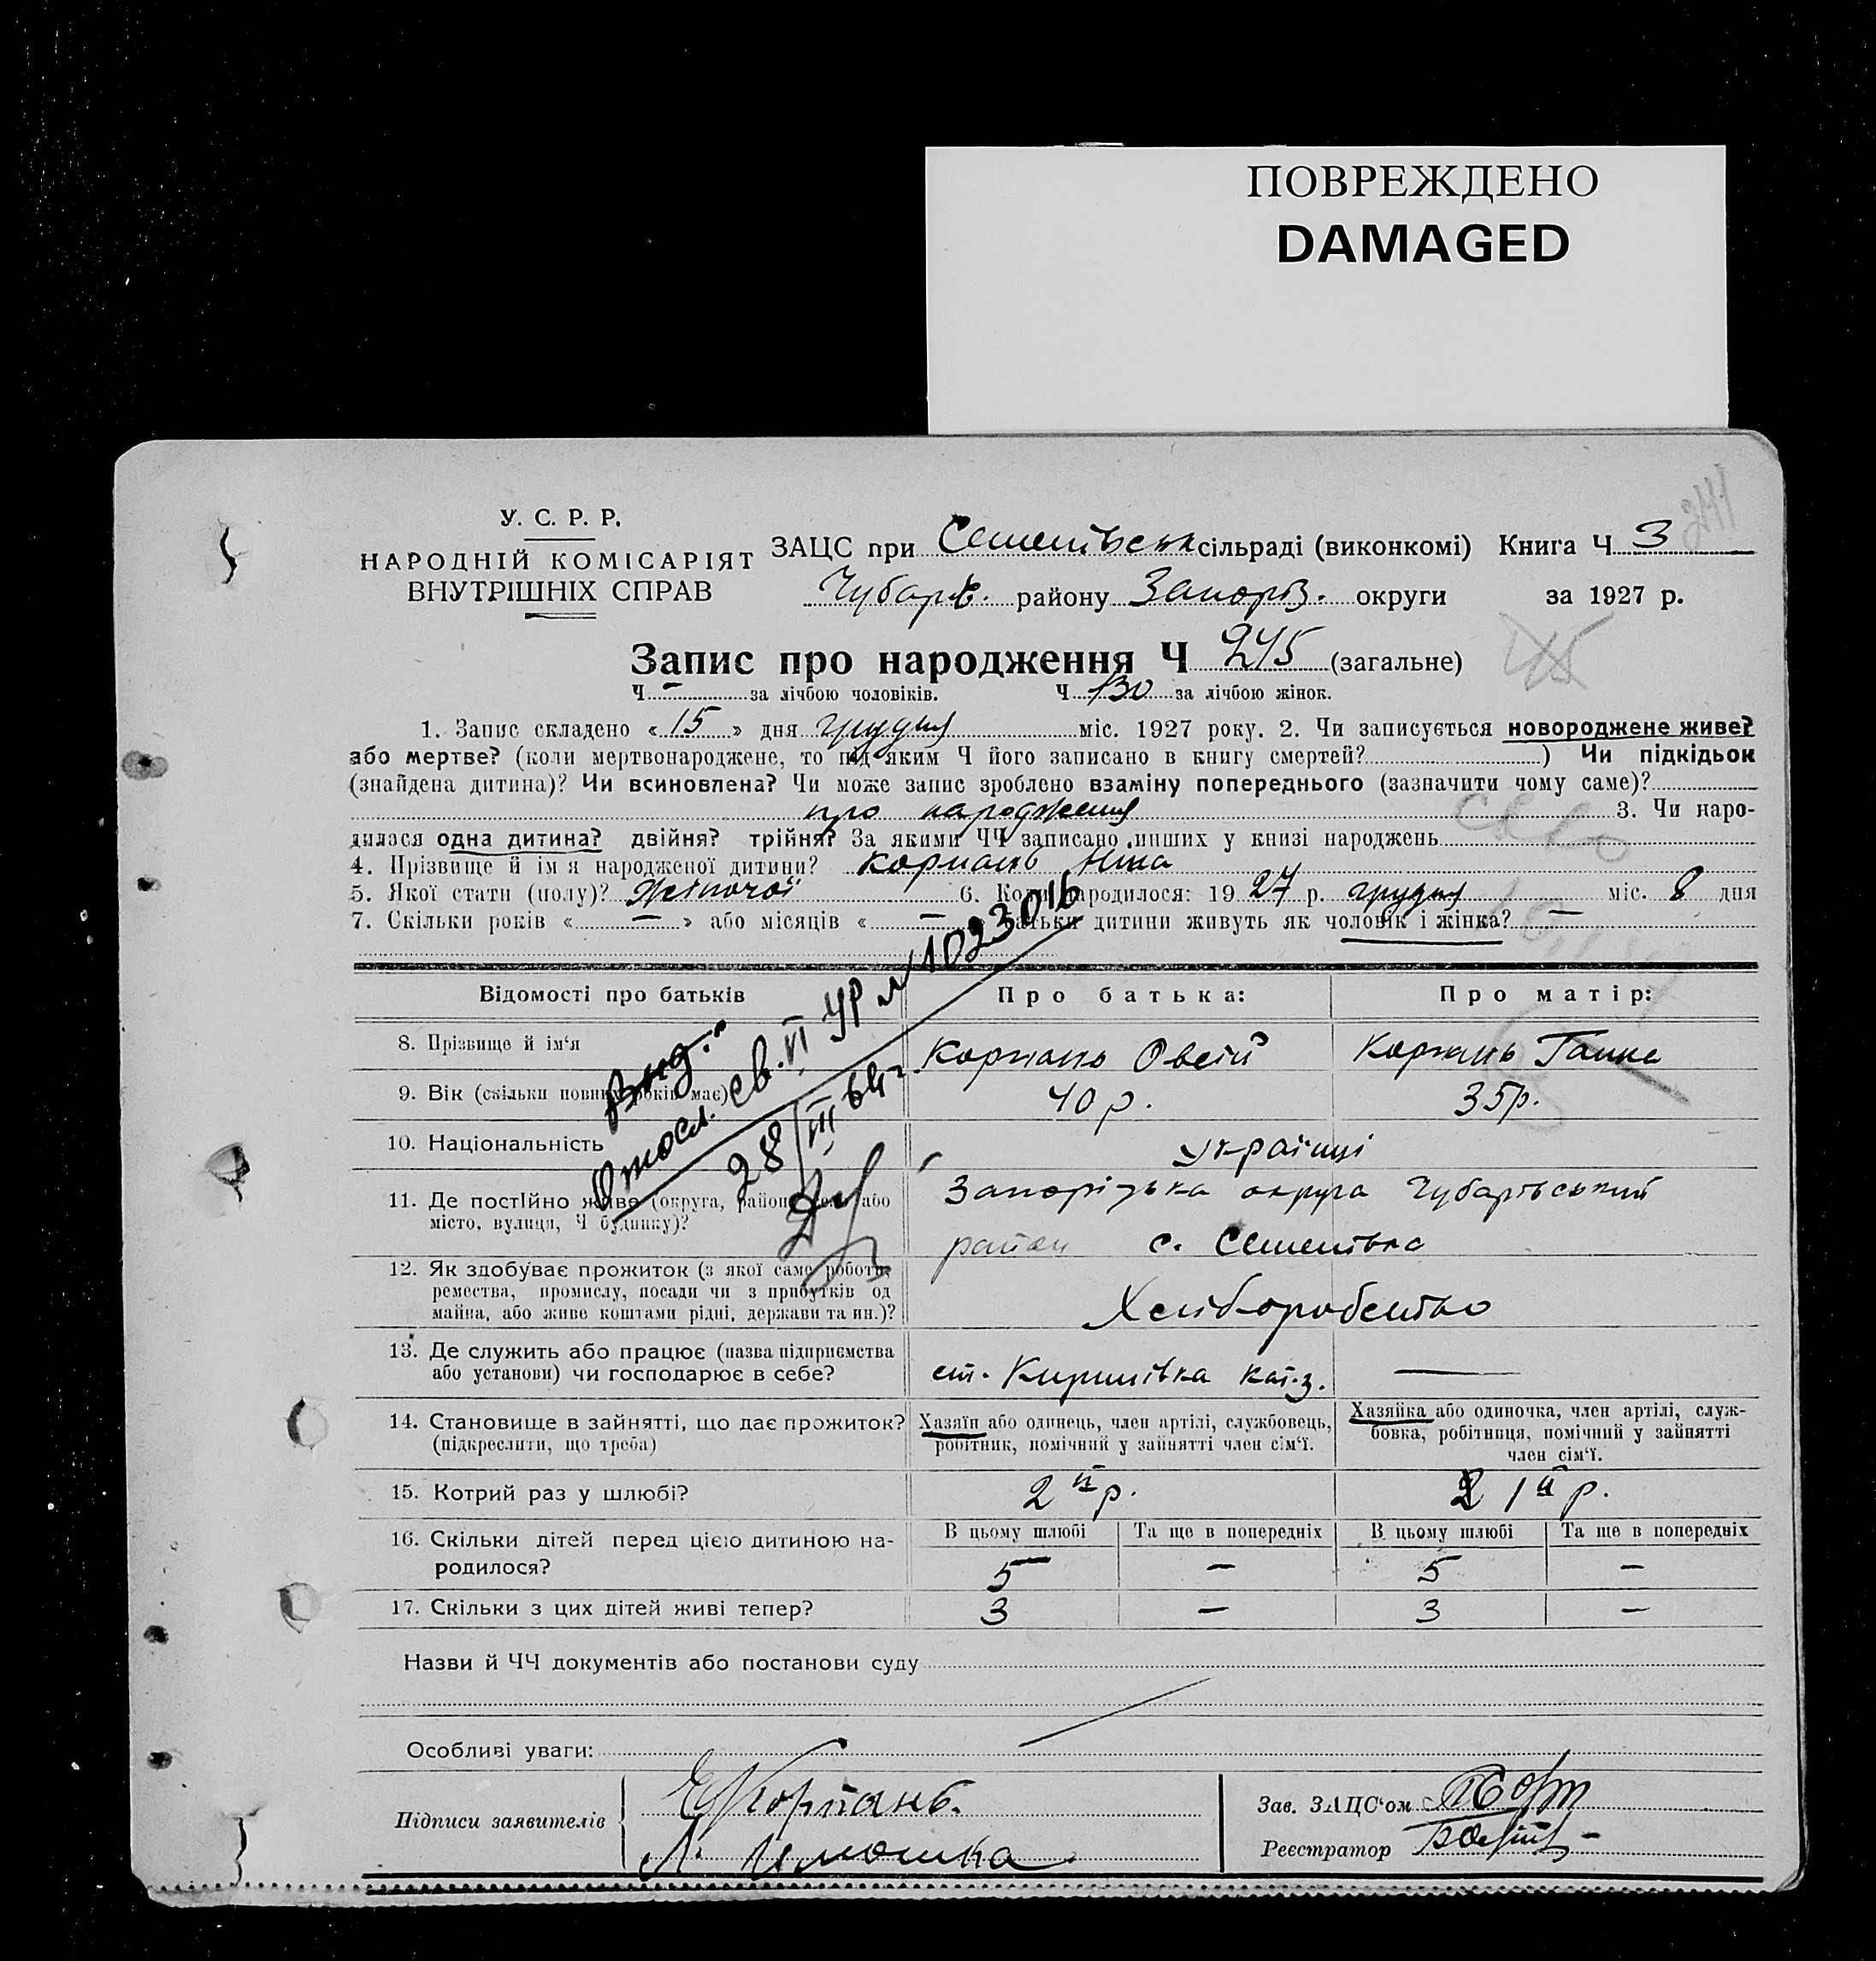 ПОВРЕЖДЕНО
DAMAGED
У. С. Р. Р.
НАРОДНІЙ КОМІСАРІЯТ
ВНУТРІШНІХ СПРАВ
ЗАЦС при Семенівськ сільраді (виконкомі) Книга Ч 3
Чубарів. району Запоріз. округи за 1927 р.
Запис про народження Ч 245 (загальне)
Ч — за лічбою чоловіків. Ч 130 за лічбою жінок.
1. Запис складено « 15 » дня грудня міс. 1927 року. 2. Чи записується новороджене живе?
або мертве? (коли мертвонароджене, то під яким Ч його записано в книгу смертей? ) Чи підкідьок
(знайдена дитина)? Чи всиновлена? Чи може запис зроблено взаміну попереднього (зазначити чому саме)?
про народження 3. Чи наро-
дилася одна дитина? двійня? трійня? За якими ЧЧ записано инших у книзі народжень
4. Прізвище й ім'я народженої дитини? Коржань Ніна
5. Якої стати (полу)? Жіночої 6. Коли народилося: 19 27 р. грудня міс. 8 дня
7. Скільки років « — » або місяців « — батьки дитини живуть як чоловік і жінка? —
Відомості про батьків Про батька: Про матір:
8. Прізвище й ім'я Коржань Овсій Коржань Ганна
9. Вік (скільки повних років має) 40 р. 35 р.
10. Національність Українці
11. Де постійно живе (округа, район, село або Запорізька округа Чубарівський
місто, вулиця, Ч будинку)? район с. Семенівка
12. Як здобуває прожиток (з якої саме роботи,
ремества, промислу, посади чи з прибутків од Хліборобство
майна, або живе коштами рідні, держави та ин.)?
13. Де служить або працює (назва підприємства
або установи) чи господарює в себе? ст. Кирилівка Кат.з. —
14. Становище в зайнятті, що дає прожиток? Хазяїн або одинець, член артілі, службовець, Хазяйка або одиночка, член артілі, служ-
(підкреслити, що треба) робітник, помічний у зайнятті член сім'ї. бовка, робітниця, помічний у зайнятті
член сім'ї.
15. Котрий раз у шлюбі? 2 й р. 1 й р.
16. Скільки дітей перед цією дитиною на- В цьому шлюбі Та ще в попередніх В цьому шлюбі Та ще в попередніх
родилося? 5 — 5 —
17. Скільки з цих дітей живі тепер? 3 — 3 —
Назви й ЧЧ документів або постанови суду
Особливі уваги:
Підписи заявителів Є Коржань.
Зав. ЗАЦС'ом
Реєстратор
Выд.
Отосл. св. VI УР № 1023016
28/III 64 г.